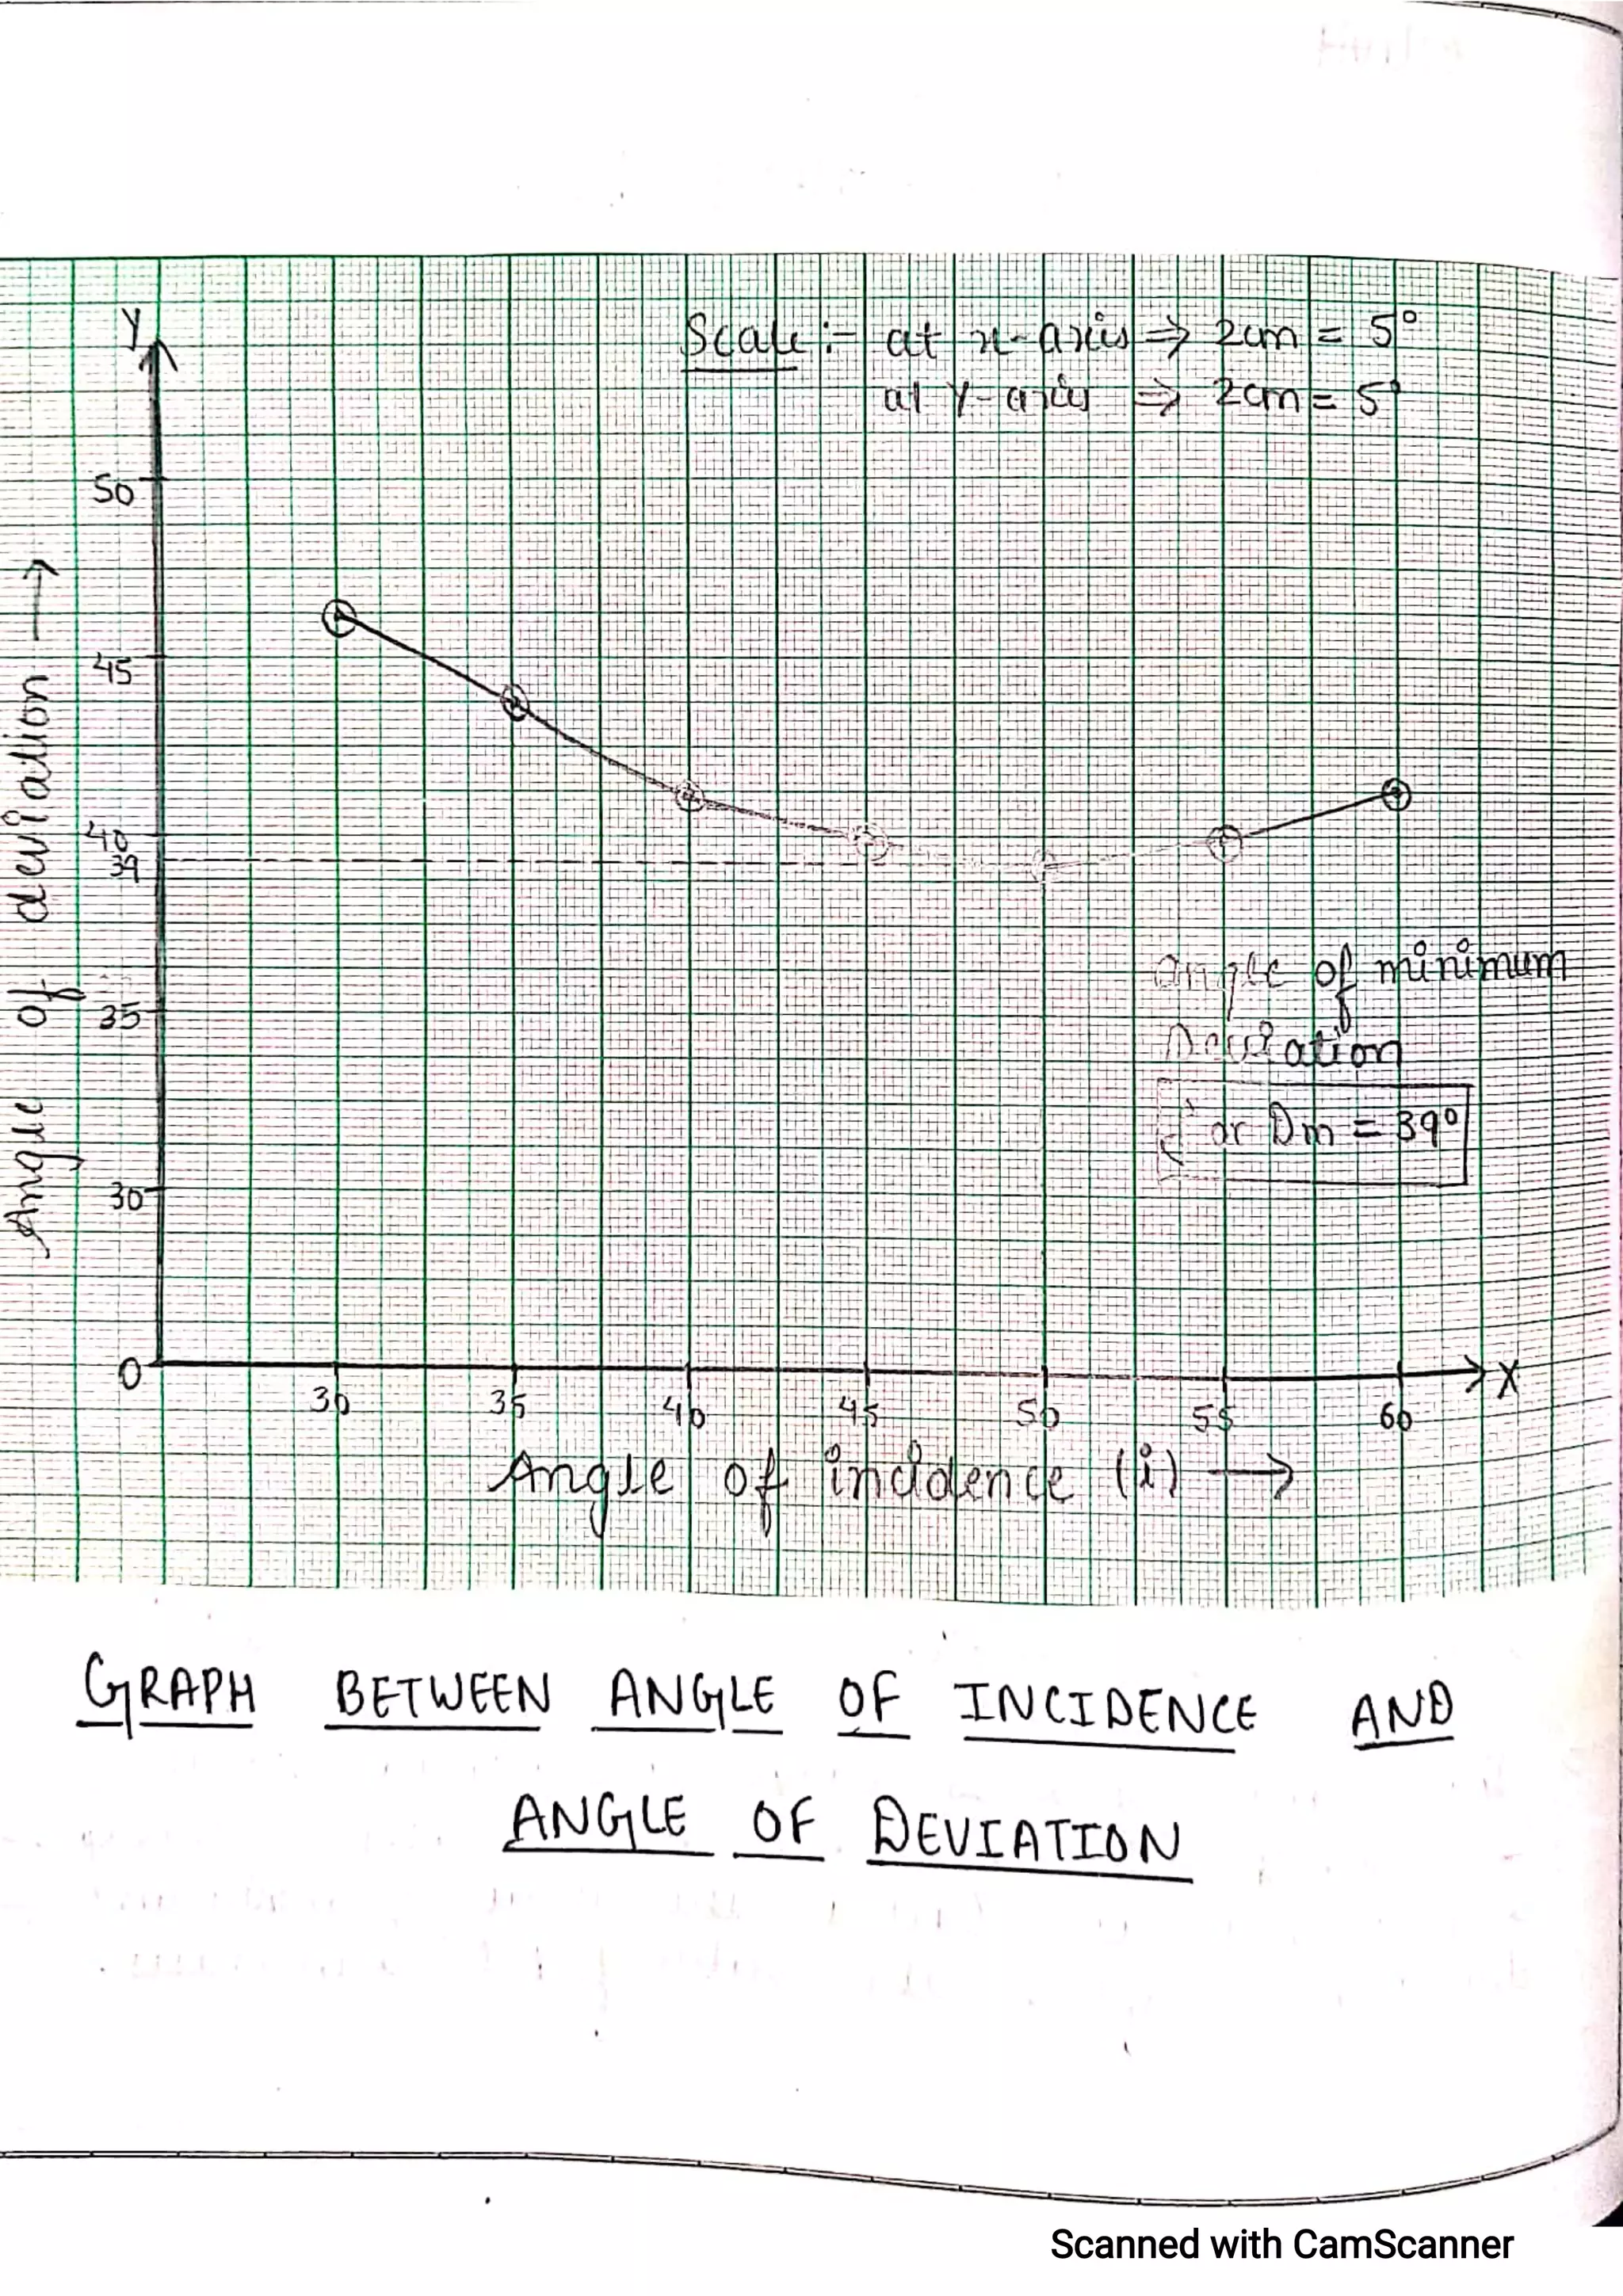 Scale :- at x-axis ⇒ 2cm = 5°
at Y-axis ⇒ 2cm = 5°
Y
50
45
40
39
35
30
0
Angle of deviation →
angle of minimum
Deviation
or Dm = 39°
30 35 40 45 50 55 60
X
Angle of incidence (i) →
GRAPH BETWEEN ANGLE OF INCIDENCE AND
ANGLE OF DEVIATION
Scanned with CamScanner